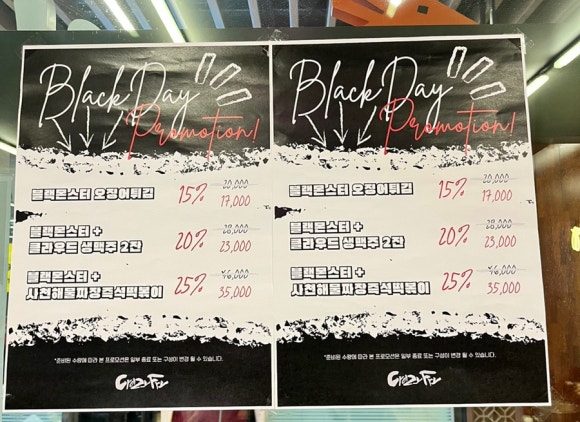 Black Day
Promotion!
블랙몬스터 오징어튀김 15% 20,000 17,000
블랙몬스터 +
클라우드 생맥주 2잔 20% 28,000 23,000
블랙몬스터 +
사천해물짜장즉석떡볶이 25% 46,000 35,000
*준비된 수량에 따라 본 프로모션은 일부 종료 또는 구성이 변경 될 수 있습니다.
Crazy Fry
Black Day
Promotion!
블랙몬스터 오징어튀김 15% 20,000 17,000
블랙몬스터 +
클라우드 생맥주 2잔 20% 28,000 23,000
블랙몬스터 +
사천해물짜장즉석떡볶이 25% 46,000 35,000
*준비된 수량에 따라 본 프로모션은 일부 종료 또는 구성이 변경 될 수 있습니다.
Crazy Fry